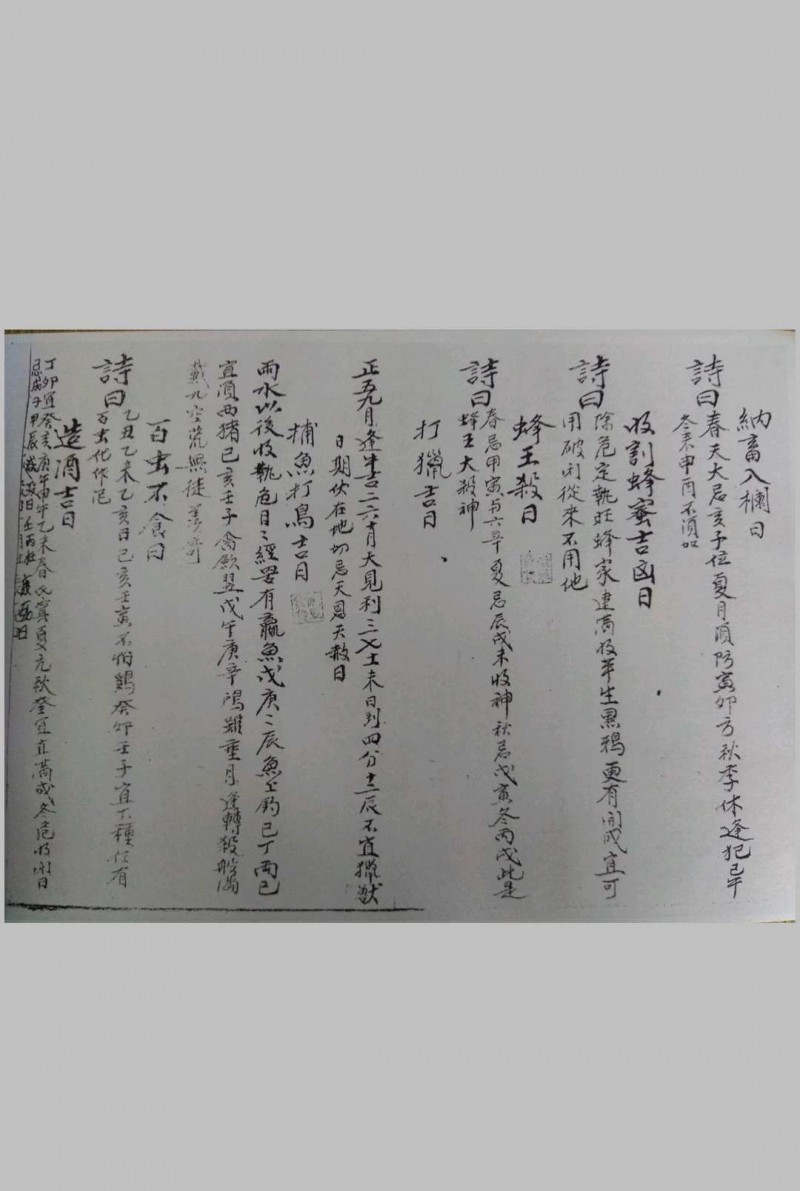 納畜入欄日
詩曰春天大忌亥子位夏月須防寅卯方秋季休逢犯巳午
冬來申酉不須
收割蜂蜜吉凶日
詩曰除危定執旺蜂家建滿收平生黑鴉更有開成宜可
用破閉從來不用他
蜂王殺日
詩曰春忌甲寅与六辛夏忌辰戌未收神秋忌戊寅冬丙戌此是
蜂王大殺神
打獵吉日
正五九月逢牛吉二六十月大見利三七十一未日到四八十二辰不宜獵獸
日期伏在地切忌天恩天赦日
捕魚打鳥吉日
雨水以後收執危日日經要有贏魚戊庚庚辰魚上釣己丁兩巳
宜須西猪己亥壬子禽獸翌戊午庚辛鴻雖重月逢轉殺船
戴九空荒無徒
百虫不食日
詩曰乙丑乙未乙亥日己亥壬寅不怕鷄癸卯壬子宜下種任有
百虫化作泥
造酒吉日
丁卯宜癸亥庚午甲午乙未春氐箕夏亢秋奎宜直滿成冬危收閉日
忌戊子甲辰滅沒日